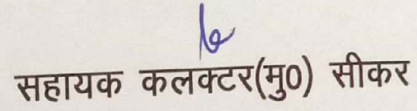 सहायक कलक्टर(मु0) सीकर